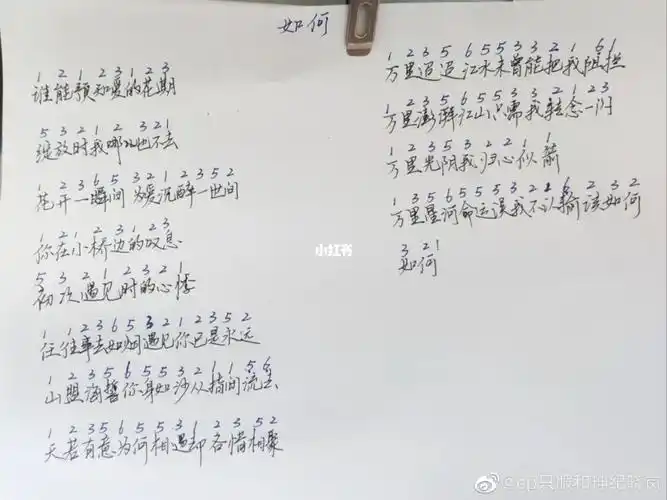 如何
1 2 1 2 3 1 2 3
谁能预知爱的花期
5 3 2 1 2 3 2 1
绽放时我哪儿也不去
1 2 3 6 5 3 2 1 2 3 5 2
花开一瞬间 为爱沉醉一世间
1 2 1 2 3 1 2 3
你在小桥边的叹息
5 3 2 1 2 3 2 1
初次遇见时的心悸
1 1 2 3 6 5 3 2 1 2 3 5 2
往往事去如烟遇见你已是永远
1 2 3 5 6 5 5 3 2 1 1 5 6
山盟海誓你身如沙从指间流去
1 2 3 5 6 5 5 3 1 2 3 5 2
天若有意为何相遇却各惜相聚
1 2 3 5 6 5 5 3 3 2 1 6 1
万里迢迢江水未曾能把我阻拦
1 2 3 5 6 5 5 3 3 2 1 2 3
万里澎湃江山只需我转念一闪
1 2 3 5 3 2 2 1 1
万里光阴我归心似箭
1 3 5 6 5 5 5 3 2 1 6 2 3 2
万里星河命运误我不认输该如何
3 2 1
如何
小红书